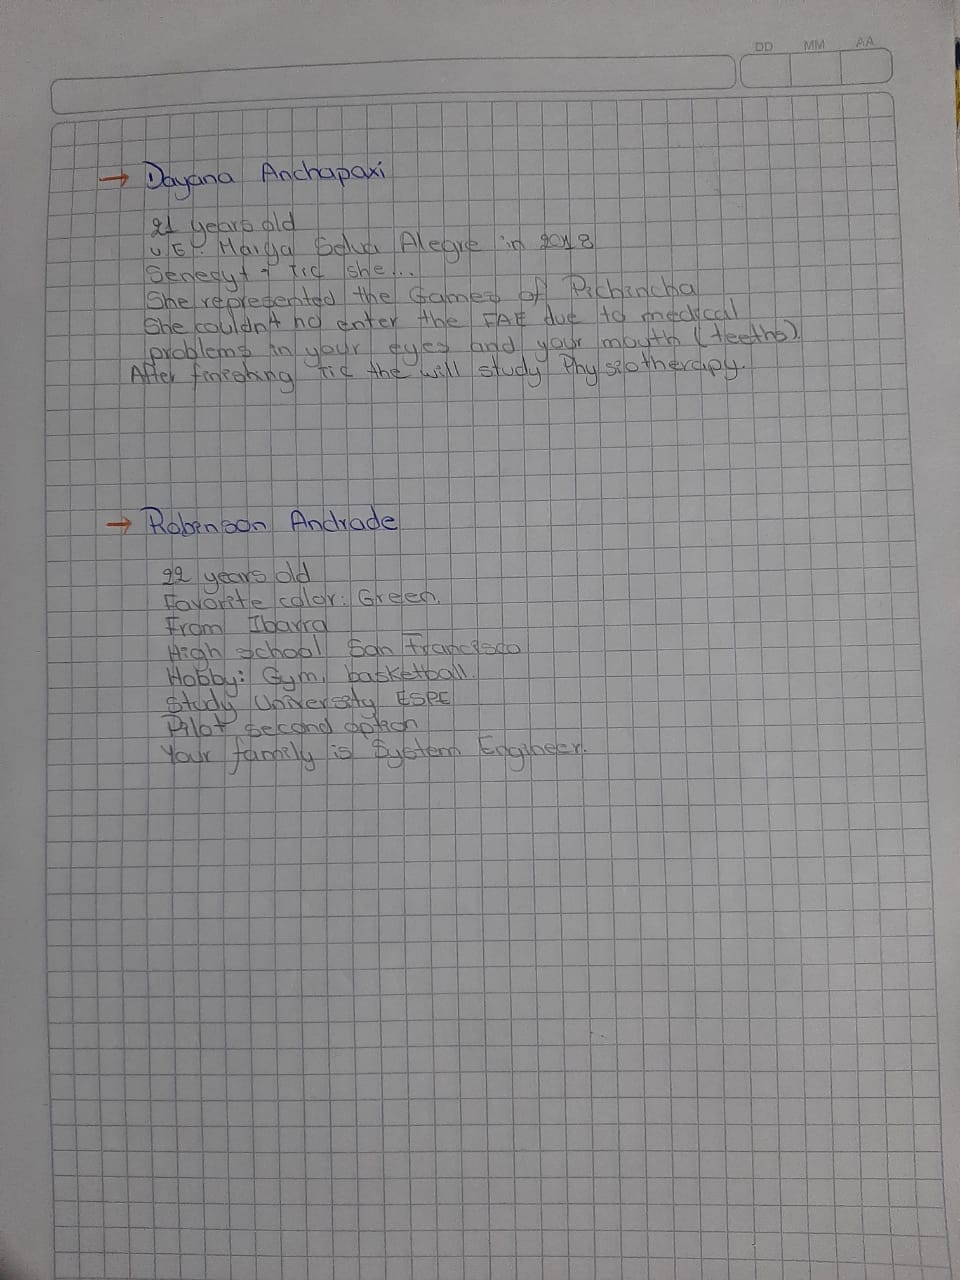 DD MM AA
→ Dayana Anchapaxi
21 years old
U.E. Marya Salva Alegre in 2018
Senecyt - Tic she...
She represented the Games of Pichincha
She couldn't no enter the FAE due to medical
problems in your eyes and your mouth (teeths).
After finishing Tic the will study Physiotherapy.
→ Robinson Andrade
22 years old
Favorite color: Green.
From Ibarra
High school San Francisco
Hobby: Gym, basketball.
Study University ESPE
Pilot second option
Your family is System Engineer.